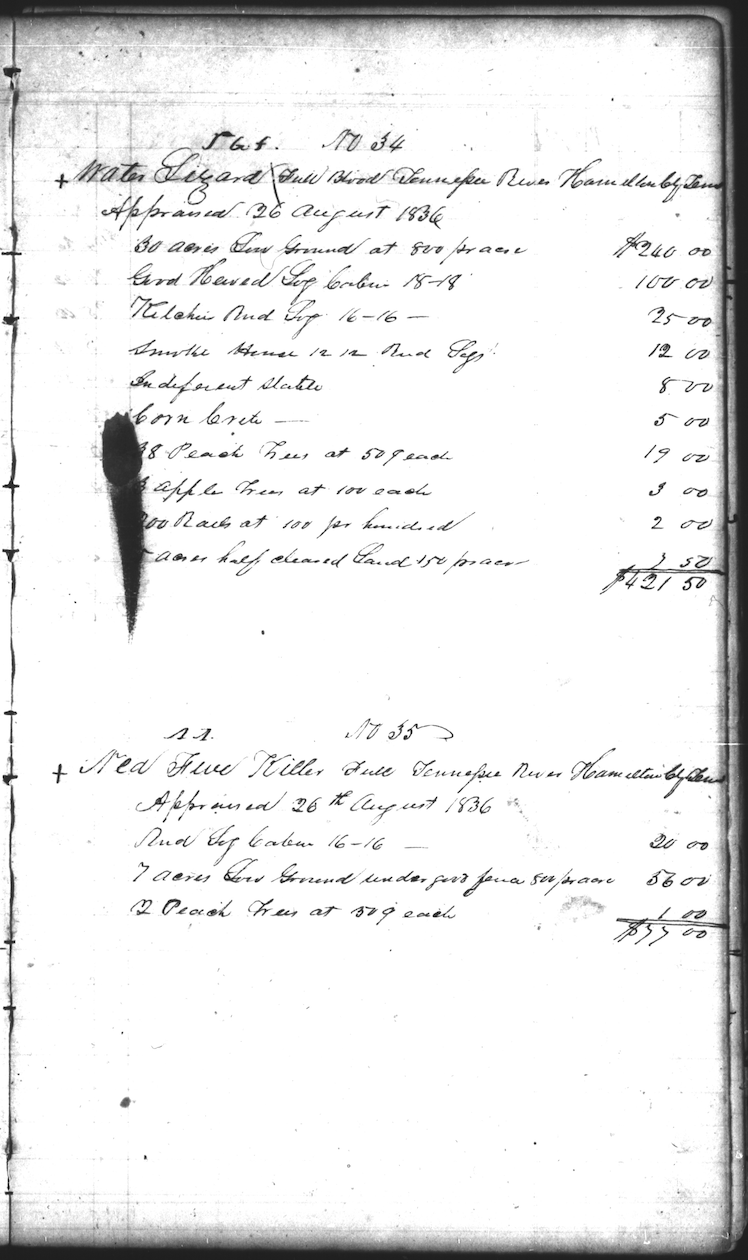 No 34
+ Water Lizard Full Blood Tennessee River Hamilton Cty Tenn
Appraised 26 August 1836
30 acres Low Ground at 800 pr acre $240 00
Good Hewed Log Cabin 18-18 100 00
Kitchin Rud Log 16-16 — 25 00
Smoke House 12 12 Rud Logs 12 00
Indeferent Stable 8 00
Corn Crib — 5 00
38 Peach Trees at 50¢ each 19 00
3 apple Trees at 100 each 3 00
200 Rails at 100 pr hundred 2 00
5 acres half cleared Land 150 pr acre 7 50
$421 50
No 35
+ Ned Five Killer Full Tennessee River Hamilton Cty Tenn
Appraised 26th August 1836
Rud Log Cabin 16-16 — 20 00
7 acres Low Ground under good fence 800 pr acre 56 00
2 Peach Trees at 50¢ each 1 00
$77 00